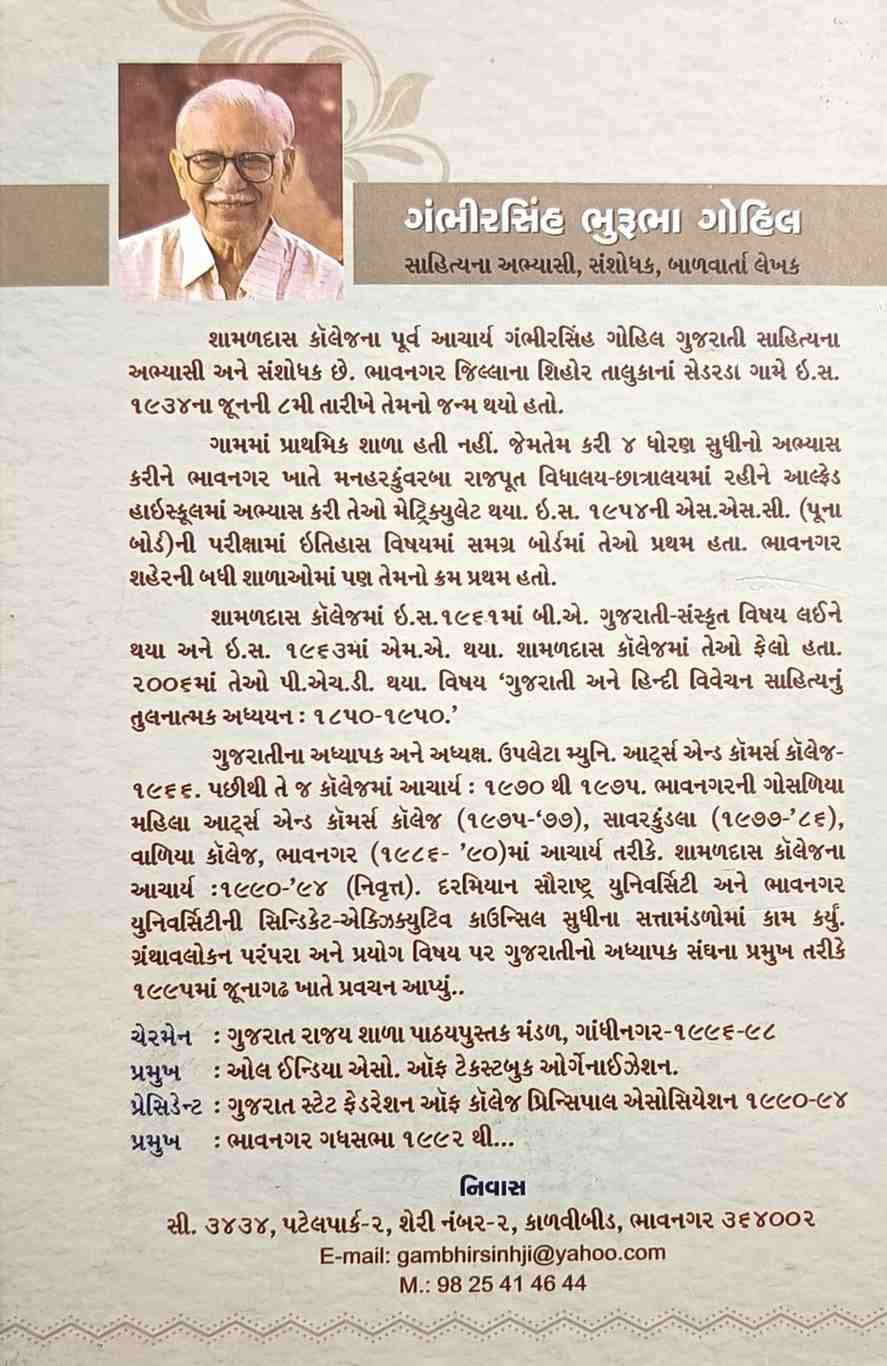 ગંભીરસિંહ ભુરૂભા ગોહિલ
સાહિત્યના અભ્યાસી, સંશોધક, બાળવાર્તા લેખક
શામળદાસ કૉલેજના પૂર્વ આચાર્ય ગંભીરસિંહ ગોહિલ ગુજરાતી સાહિત્યના
અભ્યાસી અને સંશોધક છે. ભાવનગર જિલ્લાના શિહોર તાલુકાનાં સેડરડા ગામે ઇ.સ.
૧૯૩૪ના જૂનની ૮મી તારીખે તેમનો જન્મ થયો હતો.
ગામમાં પ્રાથમિક શાળા હતી નહીં. જેમતેમ કરી ૪ ધોરણ સુધીનો અભ્યાસ
કરીને ભાવનગર ખાતે મનહરકુંવરબા રાજપૂત વિધાલય-છાત્રાલયમાં રહીને આલ્ફ્રેડ
હાઇસ્કૂલમાં અભ્યાસ કરી તેઓ મેટ્રિક્યુલેટ થયા. ઇ.સ. ૧૯૫૪ની એસ.એસ.સી. (પૂના
બોર્ડ)ની પરીક્ષામાં ઇતિહાસ વિષયમાં સમગ્ર બોર્ડમાં તેઓ પ્રથમ હતા. ભાવનગર
શહેરની બધી શાળાઓમાં પણ તેમનો ક્રમ પ્રથમ હતો.
શામળદાસ કૉલેજમાં ઇ.સ.૧૯૬૧માં બી.એ. ગુજરાતી-સંસ્કૃત વિષય લઈને
થયા અને ઇ.સ. ૧૯૬૩માં એમ.એ. થયા. શામળદાસ કૉલેજમાં તેઓ ફેલો હતા.
૨૦૦૬માં તેઓ પી.એચ.ડી. થયા. વિષય ‘ગુજરાતી અને હિન્દી વિવેચન સાહિત્યનું
તુલનાત્મક અધ્યયન : ૧૮૫૦-૧૯૫૦.’
ગુજરાતીના અધ્યાપક અને અધ્યક્ષ. ઉપલેટા મ્યુનિ. આર્ટ્સ એન્ડ કૉમર્સ કૉલેજ-
૧૯૬૬. પછીથી તે જ કૉલેજમાં આચાર્ય : ૧૯૭૦ થી ૧૯૭૫. ભાવનગરની ગોસળિયા
મહિલા આર્ટ્સ એન્ડ કૉમર્સ કૉલેજ (૧૯૭૫-‘૭૭), સાવરકુંડલા (૧૯૭૭-’૮૬),
વાળિયા કૉલેજ, ભાવનગર (૧૯૮૬- ’૯૦)માં આચાર્ય તરીકે. શામળદાસ કૉલેજના
આચાર્ય :૧૯૯૦-’૯૪ (નિવૃત્ત). દરમિયાન સૌરાષ્ટ્ર યુનિવર્સિટી અને ભાવનગર
યુનિવર્સિટીની સિન્ડિકેટ-એક્ઝિક્યુટિવ કાઉન્સિલ સુધીના સત્તામંડળોમાં કામ કર્યું.
ગ્રંથાવલોકન પરંપરા અને પ્રયોગ વિષય પર ગુજરાતીનો અધ્યાપક સંઘના પ્રમુખ તરીકે
૧૯૯૫માં જૂનાગઢ ખાતે પ્રવચન આપ્યું..
ચેરમેન : ગુજરાત રાજય શાળા પાઠયપુસ્તક મંડળ, ગાંધીનગર-૧૯૯૬-૯૮
પ્રમુખ : ઓલ ઈન્ડિયા એસો. ઑફ ટેકસ્ટબુક ઓર્ગેનાઈઝેશન.
પ્રેસિડેન્ટ : ગુજરાત સ્ટેટ ફેડરેશન ઑફ કૉલેજ પ્રિન્સિપાલ એસોસિયેશન ૧૯૯૦-૯૪
પ્રમુખ : ભાવનગર ગધસભા ૧૯૯૨ થી...
નિવાસ
સી. ૩૪૩૪, પટેલપાર્ક-૨, શેરી નંબર-૨, કાળવીબીડ, ભાવનગર ૩૬૪૦૦૨
E-mail: gambhirsinhji@yahoo.com
M.: 98 25 41 46 44